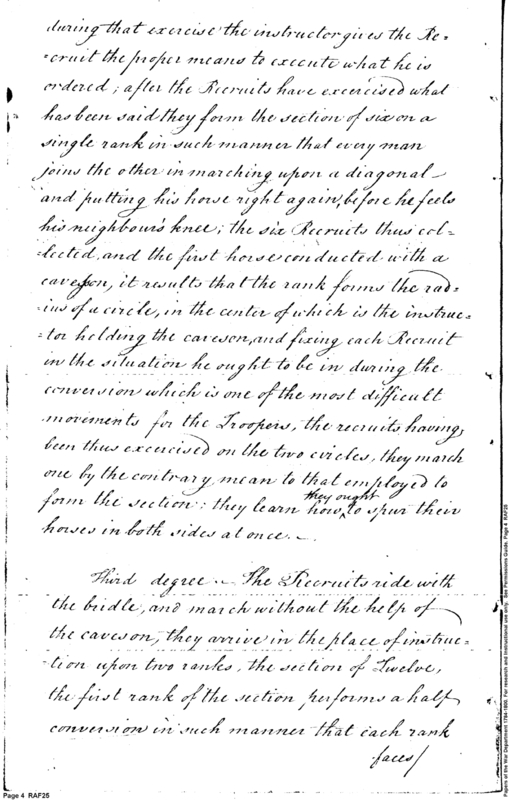 during that exercise the instructor gives the Re=
=cruit the proper means to execute what he is
ordered; after the Recruits have exercised what
has been said they form the section of six on a
single rank in such manner that every man
joins the other in marching upon a diagonal
and putting his horse right again, before he feels
his neighbour's knee; the six Recruits thus col=
=lected, and the first horse conducted with a
caveson, it results that the rank forms the rad=
=ius of a circle, in the center of which is the instruc=
=tor holding the caveson, and fixing each Recruit
in the situation he ought to be in during the
conversion which is one of the most difficult
movements for the Troopers, the recruits having
been thus exercised on the two circles, they march
one by the contrary mean to that employed to
form the section; they learn how they ought to spur their
horses in both sides at once. —
Third degree — The Recruits ride with
the bridle, and march without the help of
the caveson, they arrive in the place of instruc=
=tion upon two ranks, the section of Twelve,
the first rank of the section performs a half
conversion in such manner that each rank
faces/
Page 4 RAF25
Papers of the War Department 1784-1800. For research and instructional use only. See Permissions Guide. Page 4 RAF25